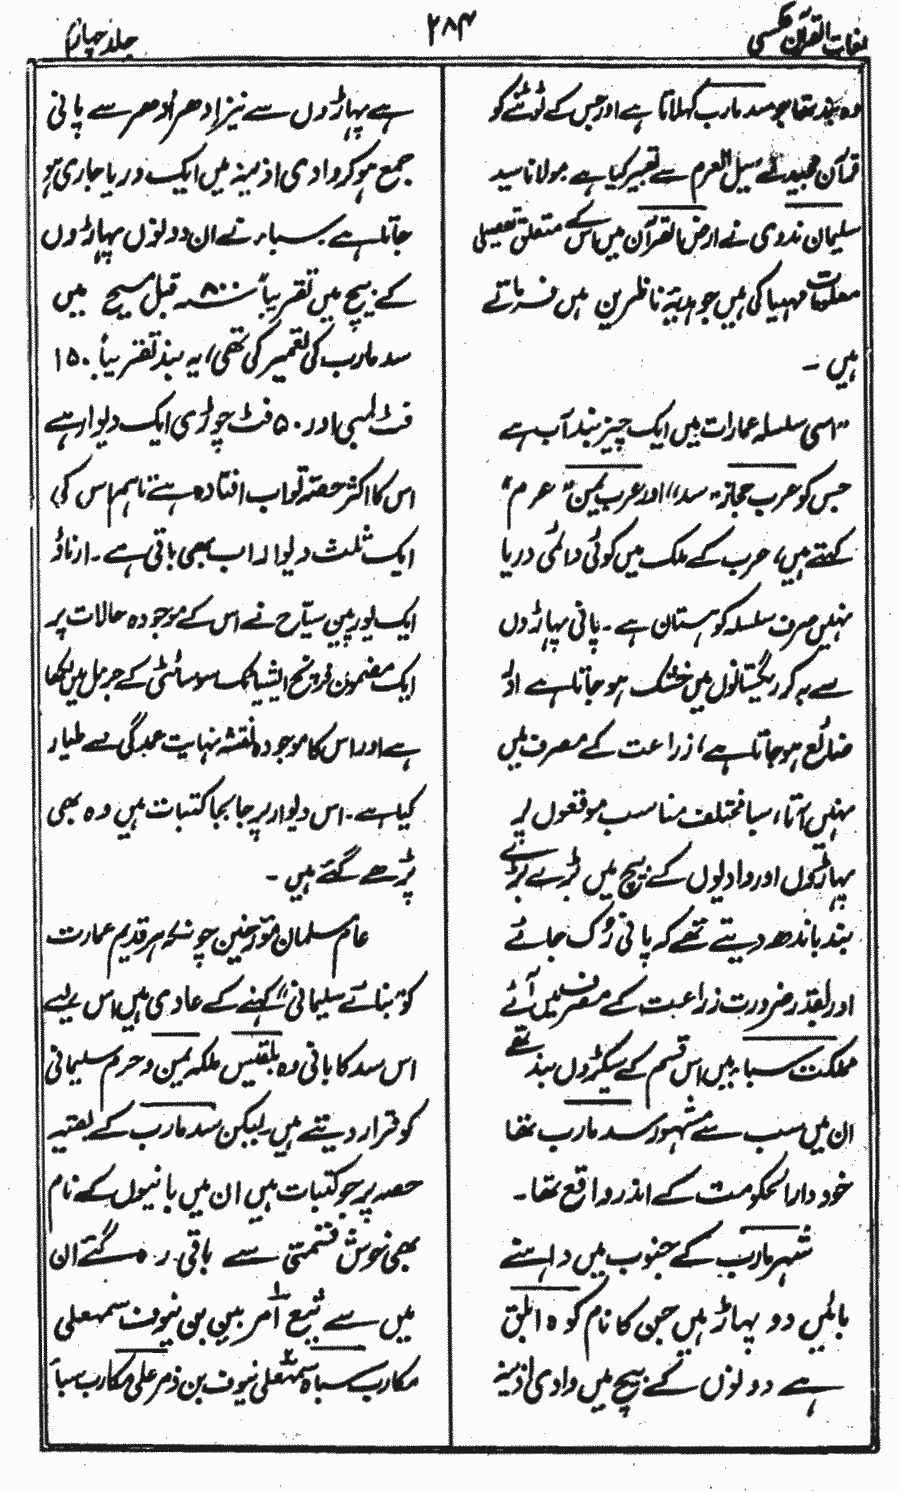 لغات القرآن عکسی
۲۸۴
جلد چہارم
وہ بند تھا جو سد مارب کہلاتا ہے اور جس کے ٹوٹنے کو
قرآن مجید نے سیل العرم سے تعبیر کیا ہے مولانا سید
سلیمان ندوی نے ارض القرآن میں اس کے متعلق تفصیلی
معلومات مہیا کی ہیں جو ہدیۂ ناظرین ہیں فرماتے
ہیں ۔
"اسی سلسلہ عمارات میں ایک چیز بند آب ہے
جس کو عرب حجاز "سد" اور عرب یمن "عرم"
کہتے ہیں، عرب کے ملک میں کوئی دائمی دریا
نہیں صرف سلسلہ کوہستان ہے ۔ پانی پہاڑوں
سے بہ کر ریگستانوں میں خشک ہو جاتا ہے اور
ضائع ہو جاتا ہے، زراعت کے مصرف میں
نہیں آتا، سبا مختلف مناسب موقعوں پر
پہاڑوں اور وادیوں کے بیچ میں بڑے بڑے
بند باندھ دیتے تھے کہ پانی رُک جائے
اور بقدر ضرورت زراعت کے مصرف میں آئے
مملکت سباء میں اس قسم کے سیکڑوں بند تھے
ان میں سب سے مشہور سد مارب تھا
خود دار الحکومت کے اندر واقع تھا ۔
شہر مارب کے جنوب میں داہنے
بائیں دو پہاڑ ہیں جن کا نام کوہ ابلق
ہے دونوں کے بیچ میں وادی اذینہ
ہے پہاڑوں سے نیز اِدھر اُدھر سے پانی
جمع ہو کر وادی اذینہ میں ایک دریا جاری ہو
جاتا ہے ۔ سباء نے ان دونوں پہاڑوں
کے بیچ میں تقریباً ۸۰۰ سنہ قبل مسیح میں
سد مارب کی تعمیر کی تھی، یہ بند تقریباً ۱۵۰
فٹ لمبی اور ۵۰ فٹ چوڑی ایک دیوار ہے
اس کا اکثر حصہ تو اب افتادہ ہے تاہم اس کی
ایک ثلث دیوار اب بھی باقی ہے ۔ ارناڈ
ایک یورپین سیّاح نے اس کے موجودہ حالات پر
ایک مضمون فرینچ ایشیاٹک سوسائٹی کے جرنل میں لکھا
ہے اور اس کا موجودہ نقشہ نہایت عمدگی سے طیار
کیا ہے ۔ اس دیوار پر جا بجا کتبات ہیں وہ بھی
پڑھے گئے ہیں ۔
عام مسلمان مؤرخین چونکہ ہر قدیم عمارت
کو "بنائے سلیمانی" کہنے کے عادی ہیں اس لیے
اس سد کا بانی وہ بلقیس ملکہ یمن و حرم سلیمانی
کو قرار دیتے ہیں۔ لیکن سد مارب کے بقیہ
حصہ پر جو کتبات ہیں ان میں بانیوں کے نام
بھی خوش قسمتی سے باقی رہ گئے ان
میں سے یثیع أمر بین بن ینوف سمہعلی
مکارب سباء سمہعلی ینوف بن ذمر علی مکارب سبا